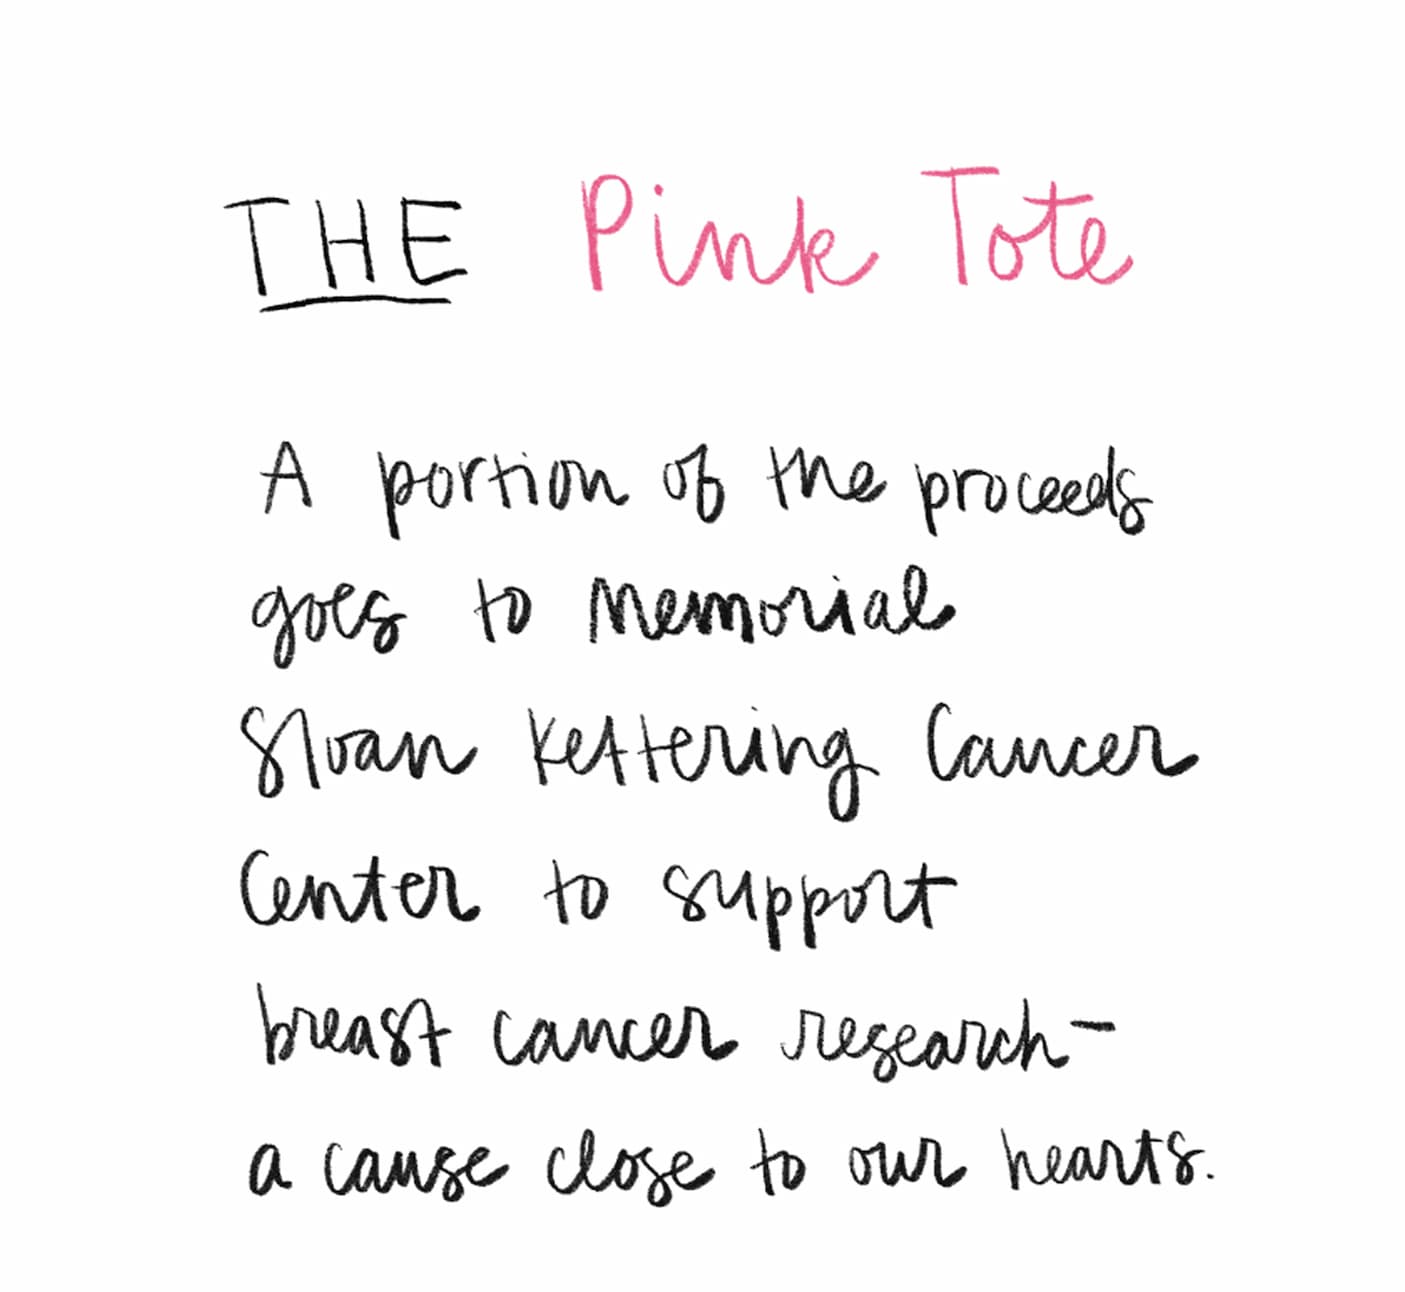 THE Pink Tote
A portion of the proceeds
goes to Memorial
Sloan Kettering Cancer
Center to support
breast cancer research-
a cause close to our hearts.